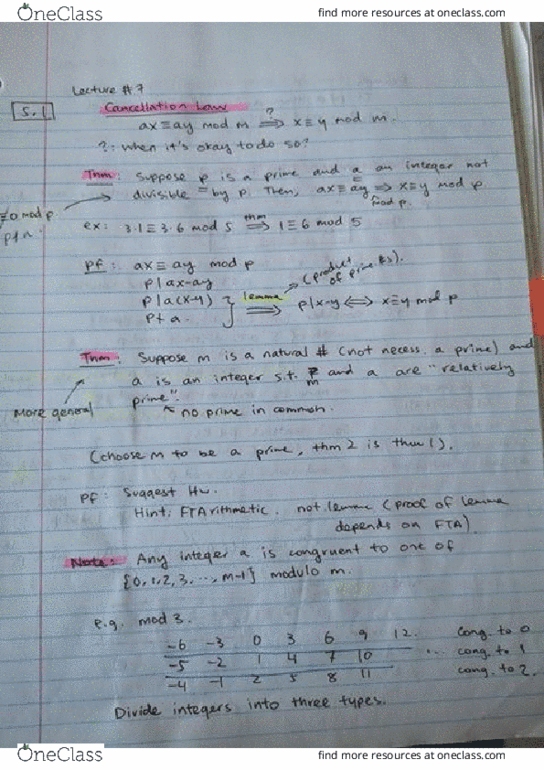 OneClass
find more resources at oneclass.com
Lecture #7
5.1
Cancellation Law
ax ≡ ay mod m ?⟹ x ≡ y mod m.
?: when it's okay to do so?
Thm: Suppose p is a prime and a an integer not
divisible by p. Then, ax ≡ ay ⟹ x ≡ y mod p
mod p.
≢0 mod p
p∤a
ex: 3·1 ≡ 3·6 mod 5 thm⟹ 1 ≡ 6 mod 5
pf: ax ≡ ay mod p
p | ax-ay
p | a(x-y)
p ∤ a
lemma ⟹ p | x-y ⟺ x ≡ y mod p
(product of prime #s).
Thm: Suppose m is a natural # (not necess. a prime) and
a is an integer s.t. m and a are "relatively
prime".
no prime in common.
More general
(choose m to be a prime, thm 2 is thm 1).
pf: Suggest Hw.
Hint: FTArithmetic. not lemma (proof of lemma
depends on FTA)
Note: Any integer a is congruent to one of
{0, 1, 2, 3, ..., m-1} modulo m.
e.g. mod 3.
-6 -3 0 3 6 9 12. cong. to 0
-5 -2 1 4 7 10 ... cong. to 1
-4 -1 2 5 8 11 cong. to 2.
Divide integers into three types.
OneClass
find more resources at oneclass.com